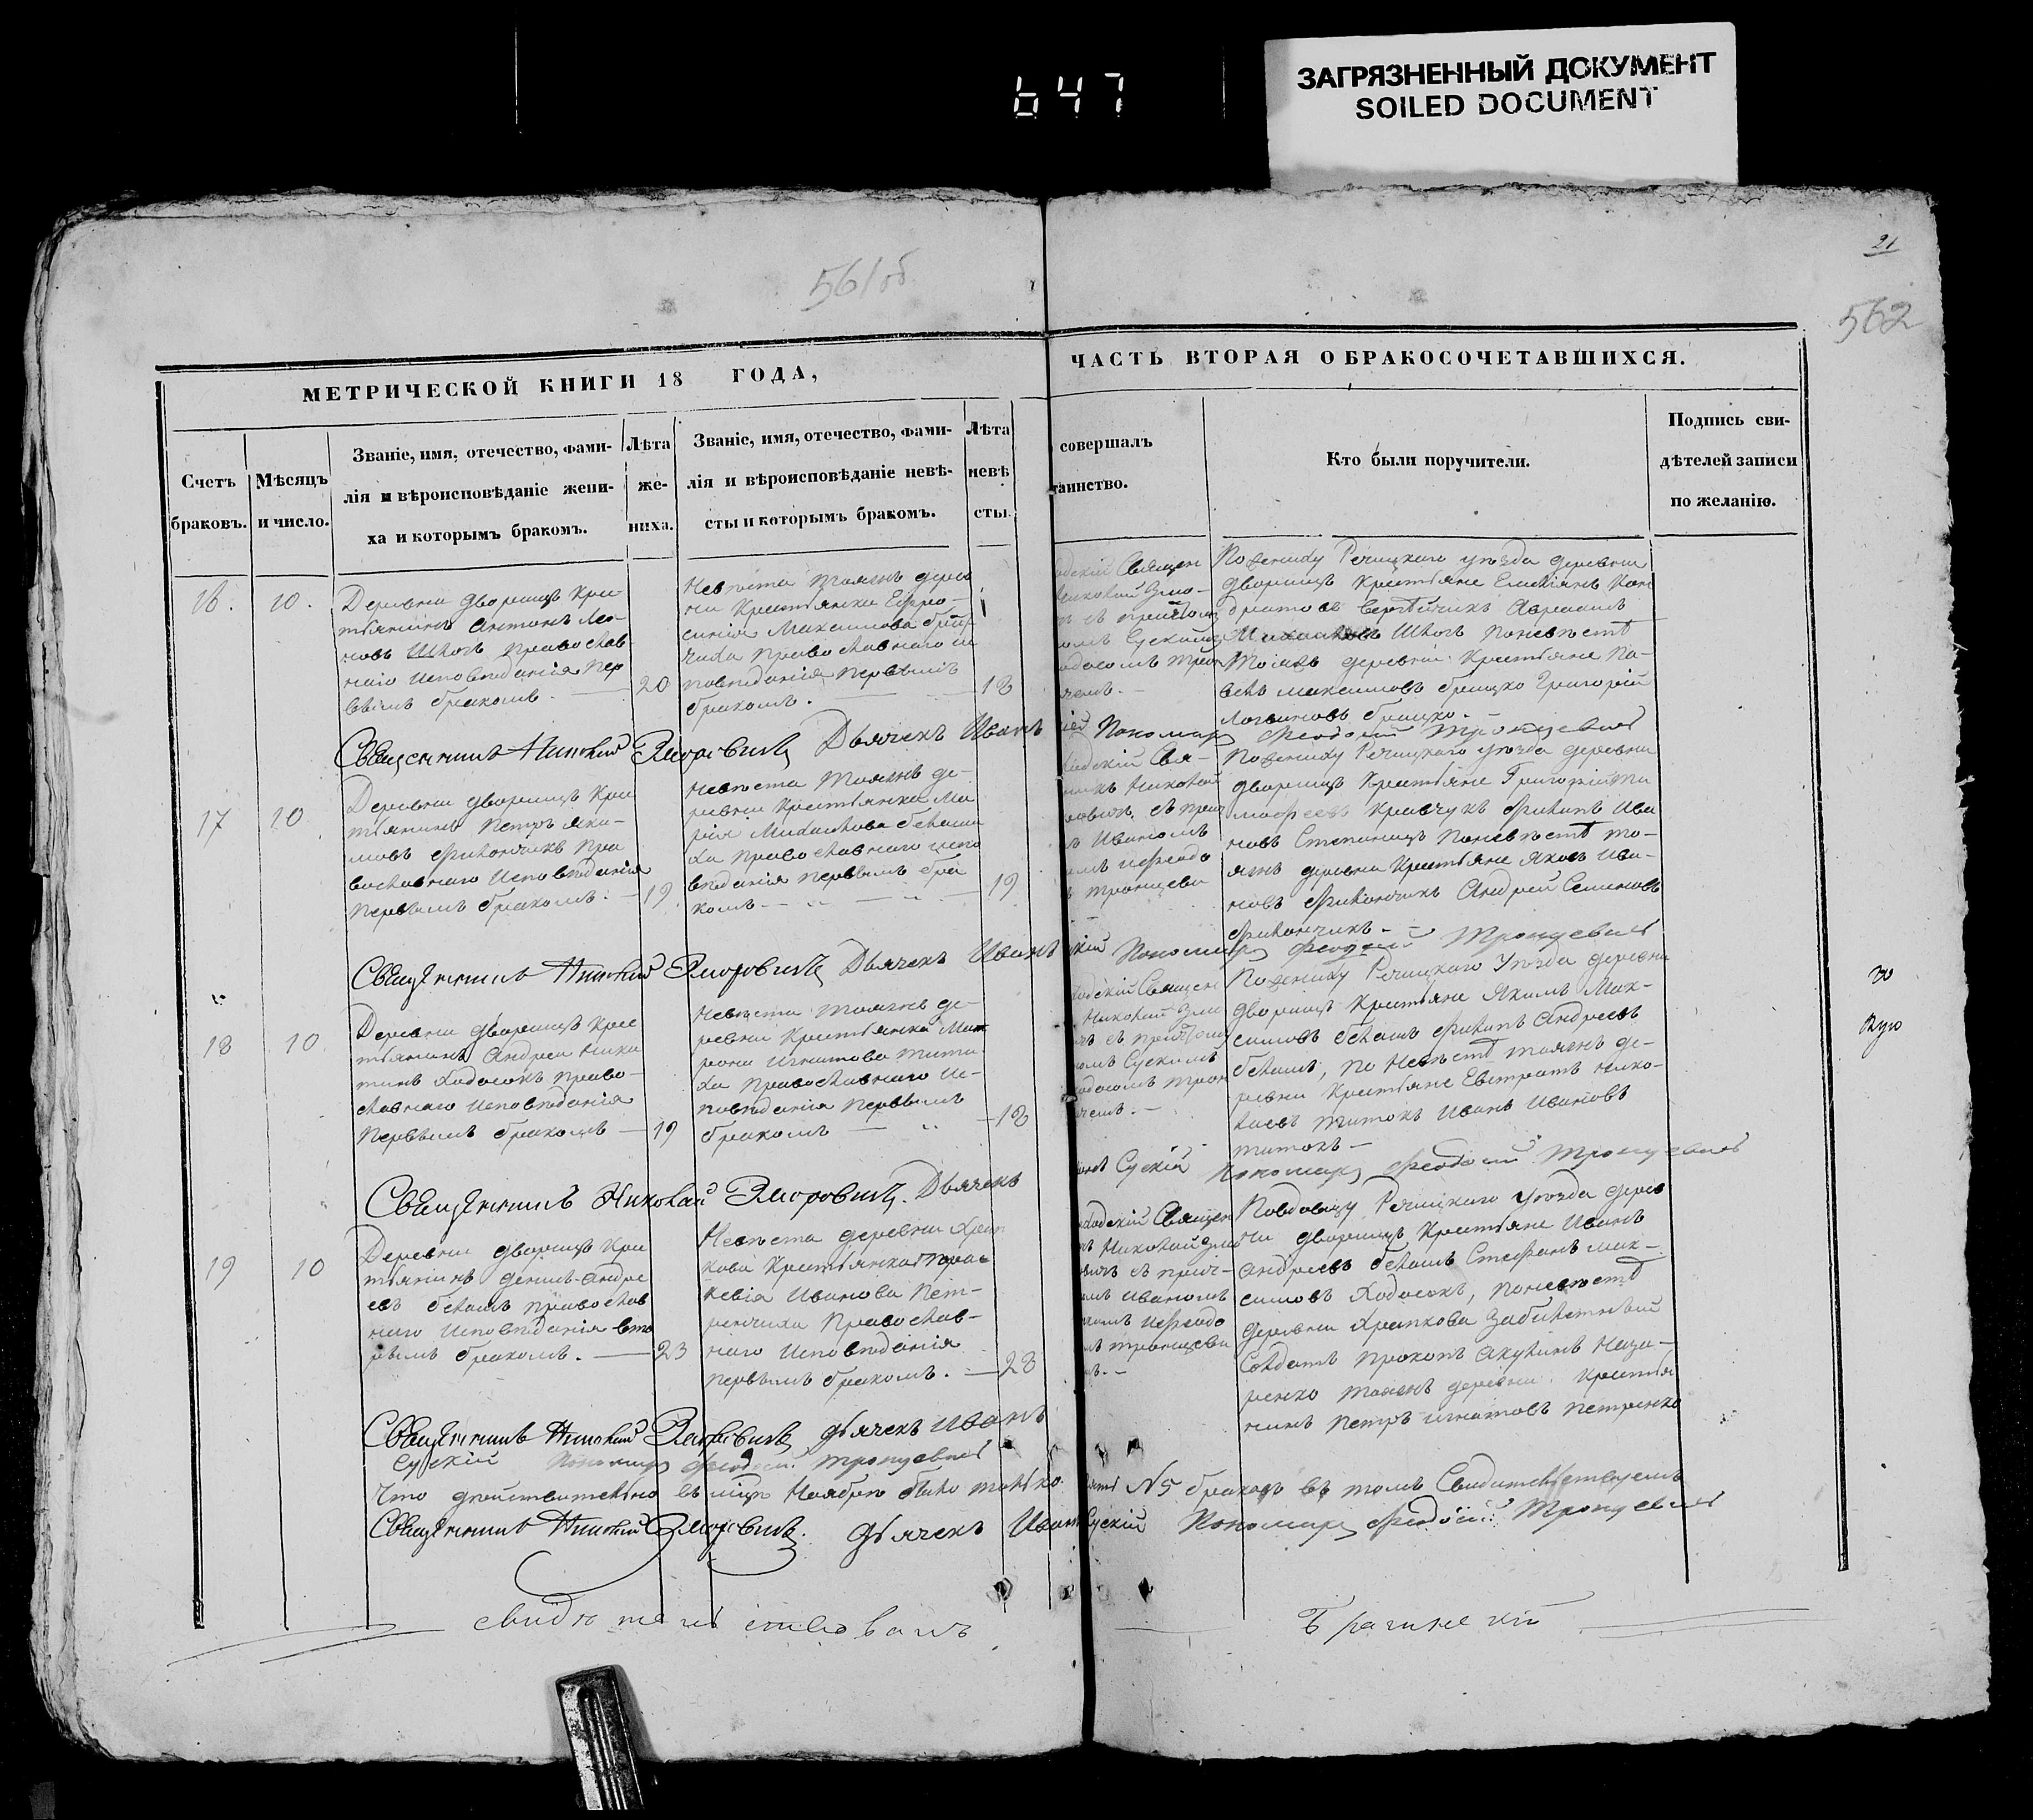 647
ЗАГРЯЗНЕННЫЙ ДОКУМЕНТ
SOILED DOCUMENT
21
561 об
562
МЕТРИЧЕСКОЙ КНИГИ 18 ГОДА,
ЧАСТЬ ВТОРАЯ О БРАКОСОЧЕТАВШИХСЯ.
Счетъ
браковъ.
Мѣсяцъ
и число.
Званіе, имя, отечество, фами-
лія и вѣроисповѣданіе жени-
ха и которымъ бракомъ.
Лѣта
же-
ниха.
Званіе, имя, отечество, фами-
лія и вѣроисповѣданіе невѣ-
сты и которымъ бракомъ.
Лѣта
невѣ
сты.
совершалъ
таинство.
Кто были поручители.
Подпись сви-
дѣтелей записи
по желанію.
16.
10.
Деревни Дворищъ Крес
тьянинъ Антонъ Ле-
новъ Шкогъ православ
наго исповѣданія пер
вымъ бракомъ.
20
Невѣста тояжъ дерев
ни Крестьянка Ефро-
синія Максимова Гриц
чиха православнаго ис
повѣданія первымъ
бракомъ.
18
одскій Священ
Николай Эмо-
чемъ.
По жениху Речицкаго уѣзда деревни
Дворищъ Крестьяне Емельянъ Кон
дратовъ Сергѣйчикъ Авраамъ
Шкогъ По невѣстѣ
тояжъ деревни Крестьяне Па-
велъ Максимовъ Грицко Григорій
Логвиновъ Грицко.
Священникъ Николай Эморовичъ Дьячекъ Иванъ
Пономарь Феодосій Тронцевичъ
17
10
Деревни Дворищъ Крес
тьянинъ Петръ Яки-
мовъ Филончикъ Пра
вославнаго исповѣданія
первымъ бракомъ.
19
Невѣста тояжъ де-
ревни Крестьянка Ма
рія Михайлова Белаш
ха православнаго испо
вѣданія первымъ бра
комъ
19
одскій Свя-
никъ Николай
ровичъ съ прич
ъ Иваномъ
имъ и Феодо
ъ Тронцеви
По жениху Речицкаго уѣзда деревни
Дворищъ Крестьяне Григорій Ти
мофеевъ Кравчукъ Филипъ Ива
новъ Степанецъ По невѣстѣ то-
яжъ деревни Крестьяне Яковъ Ива-
новъ Филончикъ Андрей Семеновъ
Филончикъ
Священникъ Николай Эморовичъ Дьячекъ Иванъ
скій Пономарь Феодосій Тронцевичъ
18
10
Деревни Дворищъ Крес
тьянинъ Андрей Ники
тинъ Ходосокъ право-
славнаго исповѣданія
первымъ бракомъ
19
Невѣста тояжъ де-
ревни Крестьянка Мат
рона Игнатова Тито
ха православнаго ис-
повѣданія первымъ
бракомъ
18
одскій Священ
Николай Эмо
омъ Сускимъ
чемъ.
По жениху Речицкаго Уѣзда деревни
Дворищъ Крестьяне Якимъ Мак-
симовъ Белашъ Филипъ Андреевъ
Белашъ, по невѣстѣ тояжъ де-
ревни Крестьяне Евстратъ Нико-
лаевъ Титокъ Иванъ Ивановъ
Титокъ
Священникъ Николай Эморовичъ. Дьячекъ
Сускій Пономарь Феодосій Тронцевичъ
19
10
Деревни Дворищъ Крес
тьянинъ Денисъ Андре
евъ Белашъ православ
наго исповѣданія вто
рымъ бракомъ.
23
Невѣста деревни Храп
кова Крестьянка Парас
кевія Иванова Пет-
ренчиха Православ-
наго исповѣданія
первымъ бракомъ.
23
ходскій Священ
ъ Николай Эмо
вичъ съ прич-
мъ Иваномъ
имъ и Феодо
ъ Тронцеви
По вдовцу Речицкаго уѣзда дерев
ни Дворищъ Крестьяне Иванъ
Андреевъ Белашъ Стефанъ Мак-
симовъ Ходосокъ, По невѣстѣ
деревни Храпкова Забилетный
Солдатъ Прокопъ Акулинъ Наза-
ренко тояжъ деревни Крестья
нинъ Петръ Игнатовъ Петренко
Священникъ Николай Эморовичъ Дьячекъ Иванъ
Сускій Пономарь Феодосій Тронцевичъ
Что дѣйствительно въ мцѣ Ноябрѣ было только
№5 браковъ въ томъ Свидѣтельствуемъ
Священникъ Николай Эморовичъ. Дьячекъ Иванъ Сускій Пономарь Феодосій Тронцевичъ
свидѣтельствовалъ